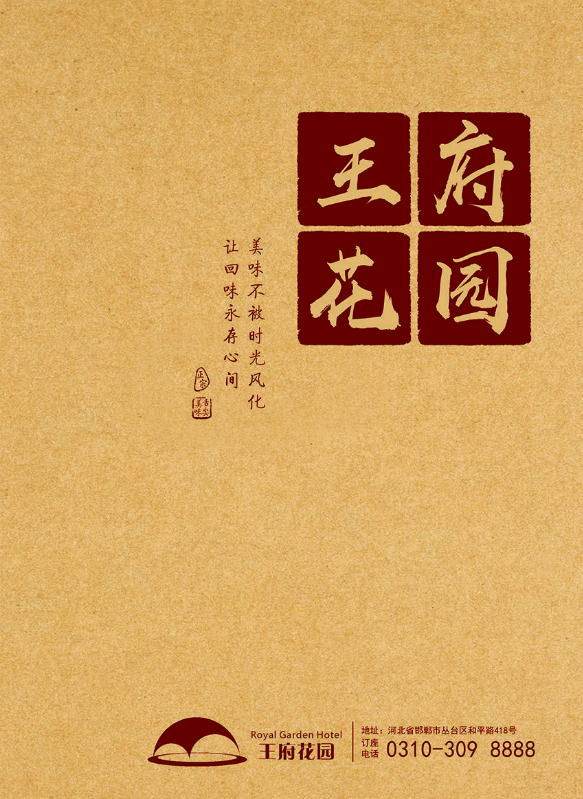 王府
花园
美味不被时光风化
让回味永存心间
正宗
舌尖
美味
Royal Garden Hotel
王府花园
地址：河北省邯郸市丛台区和平路418号
订座
电话 0310-309 8888